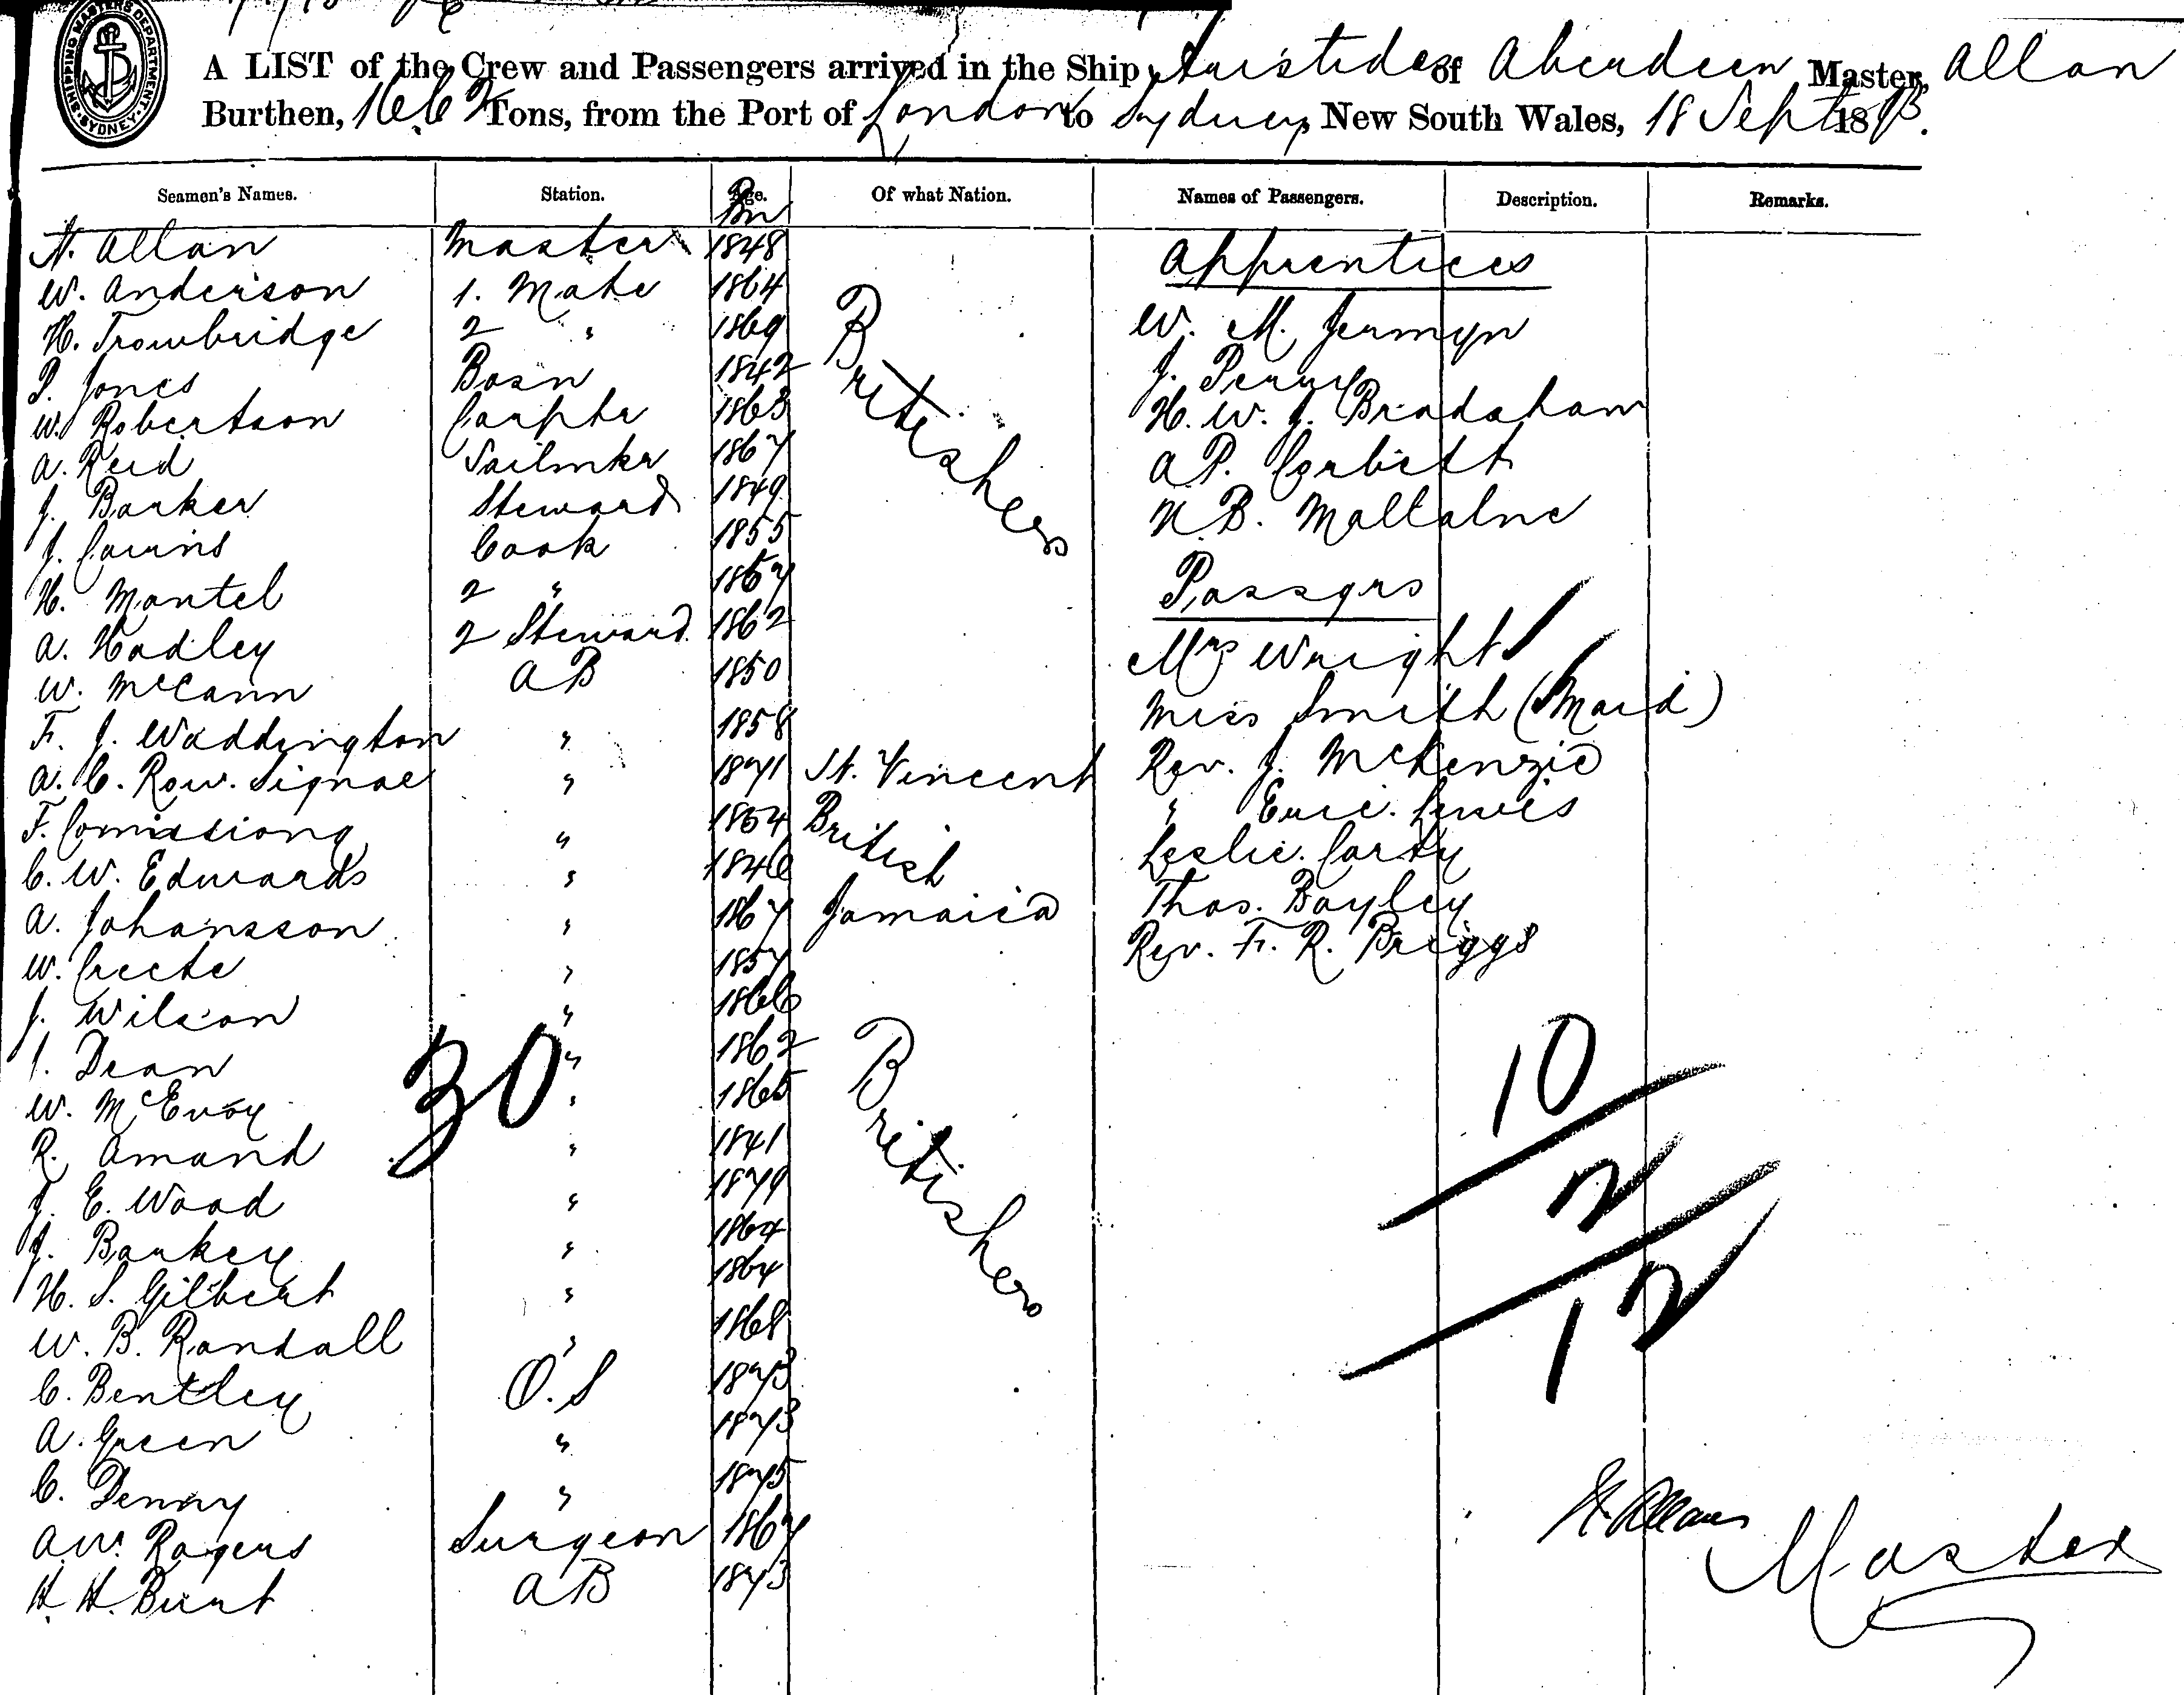 SHIPPING MASTERS DEPARTMENT. SYDNEY.
A LIST of the Crew and Passengers arrived in the Ship Aristides of Aberdeen Master, Allan
Burthen, 1662 Tons, from the Port of London to Sydney, New South Wales, 18 Sept 1893.
Seamen's Names. Station. Age. Of what Nation. Names of Passengers. Description. Remarks.
Bn
A. Allan Master 1848 Apprentices
W. Anderson 1. Mate 1864
H. Trowbridge 2 " 1869 Britishers W. M. Jermyn
P. Jones Bosn 1842 J. Penny
W. Robertson Carptr 1863 H. W. J. Bradaham
A. Reid Sailmkr 1867 A P. Corbett
J. Barker Steward 1849 N. B.
J. Cairns Cook 1855
H. Mantel 2 " 1867 Passgrs
A. Hadley 2 Steward 1862 Mrs Wright
W. McCann AB 1850 Miss Smith (Maid)
F. J. Waddington " 1858 Rev. J. McKenzie
A. C. Row. Signal " 1871 St. Vincent " Eric. Lewis
F. Comissiong " 1864 British Leslie. Carty
C. W. Edwards " 1846 Thos. Bayley
A. Johansson " 1867 Jamaica Rev. F. R. Briggs
W. Creete " 1857
J. Wilson " 1866
I. Dean " 1862 Britishers
W. McEvoy " 1865
R. Amand " 1841
J. E. Wood " 1879
J. Barkey " 1864
H. S. Gilbert " 1864
W. B. Randall " 1868
C. Bentley O.S 1873
A. Green " 1873
C. Denny " 1875
A. W. Rogers Surgeon 1867
H. H. Burt AB 1873
30
10
2
12
A. Allan Master